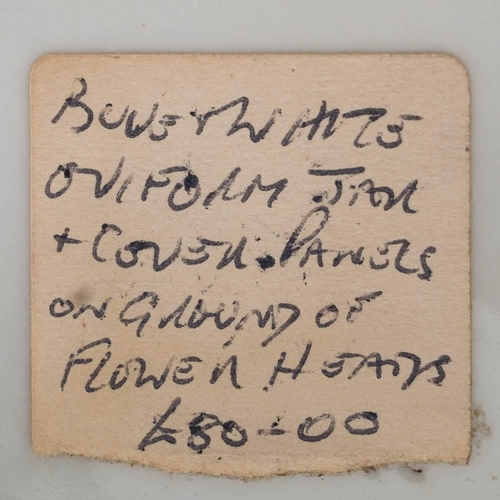 BLUE + WHITE
OVIFORM JAR
+ COVER. PANELS
ON GROUND OF
FLOWER HEADS
£80-00